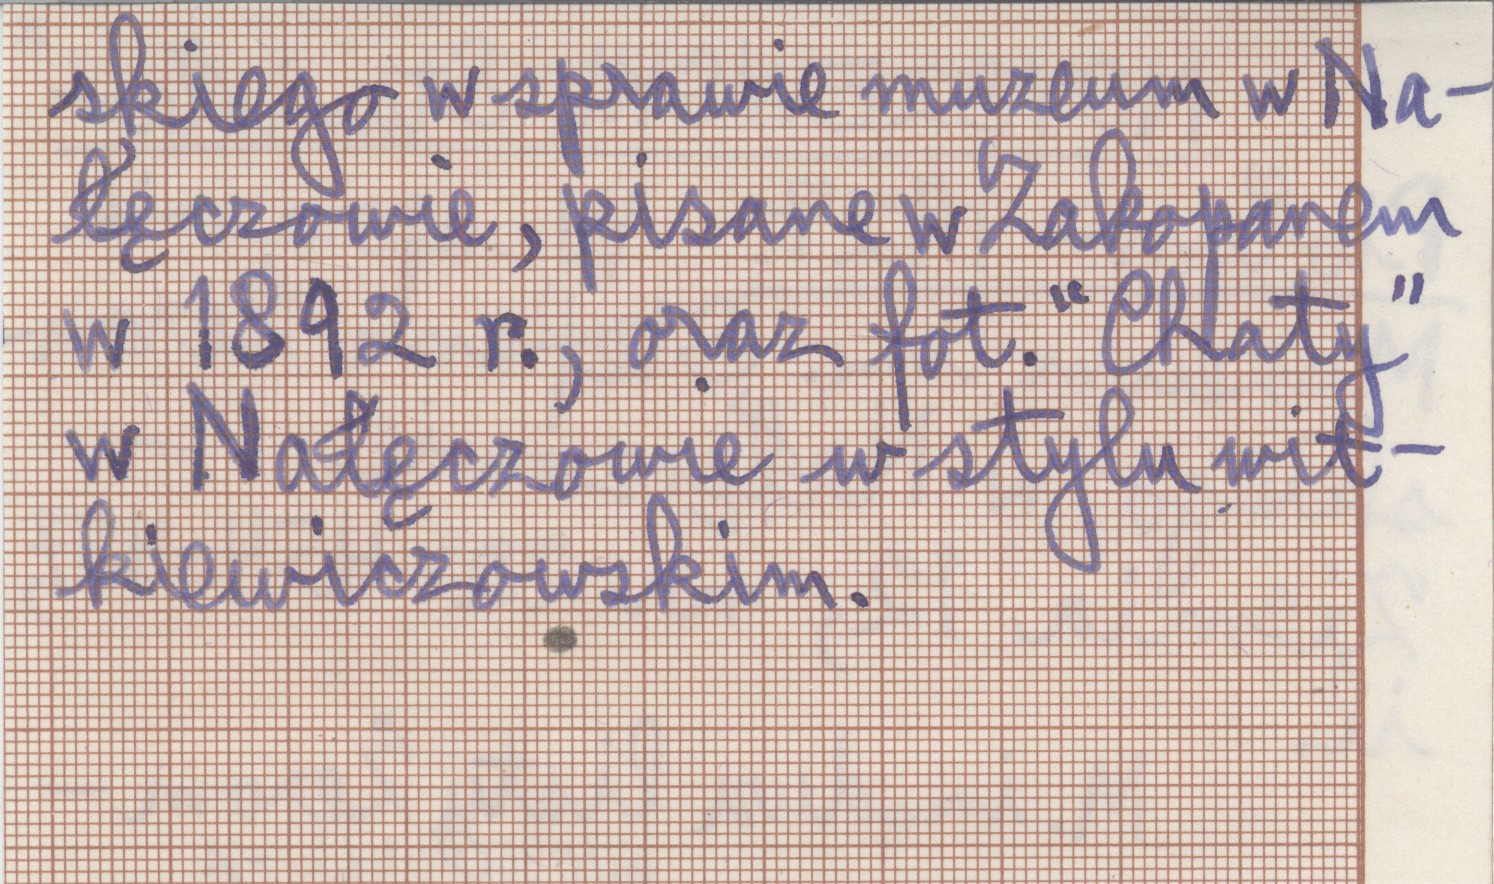 skiego w sprawie muzeum w Na-
łęczowie, pisane w Zakopanem
w 1892 r., oraz fot. "Chaty"
w Nałęczowie w stylu wit-
kiewiczowskim.